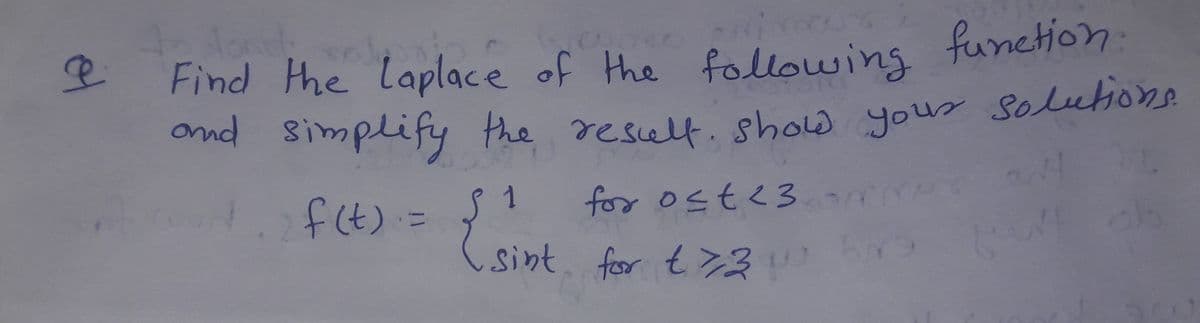 Q. Find the Laplace of the following function:
and simplify the result. show your solutions.
f(t) = { 1 for 0≤t<3
sint for t≥3